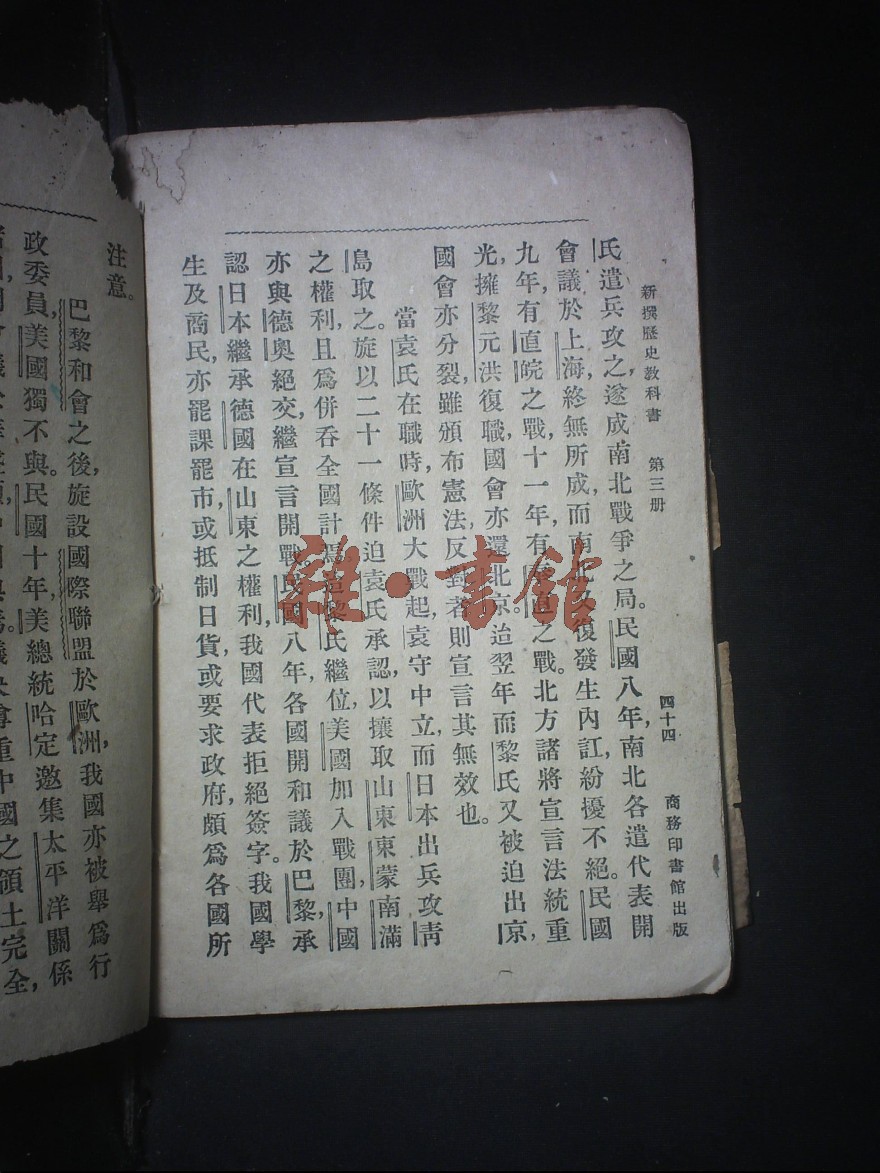 新撰歷史教科書　第三册　四十四　商務印書館出版
氏遣兵攻之，遂成南北戰爭之局。民國八年，南北各遣代表開
會議於上海，終無所成，而南北又復發生內訌，紛擾不絕。民國
九年，有直皖之戰，十一年，有之戰。北方諸將宣言法統重
光，擁黎元洪復職，國會亦還北京。迨翌年而黎氏又被迫出京，
國會亦分裂，雖頒布憲法，反對者則宣言其無效也。
當袁氏在職時，歐洲大戰起，袁守中立，而日本出兵攻靑
島取之。旋以二十一條件迫袁氏承認，以攘取山東東蒙南滿
之權利，且爲併吞全國計焉。迨黎氏繼位，美國加入戰團，中國
亦與德奧絕交，繼宣言開戰。民國八年，各國開和議於巴黎，承
認日本繼承德國在山東之權利，我國代表拒絕簽字。我國學
生及商民，亦罷課罷市，或抵制日貨，或要求政府，頗爲各國所
注意。
巴黎和會之後，旋設國際聯盟於歐洲，我國亦被舉爲行
政委員，美國獨不與。民國十年，美總統哈定邀集太平洋關係
尊重中國之領土完全，
雜·書館